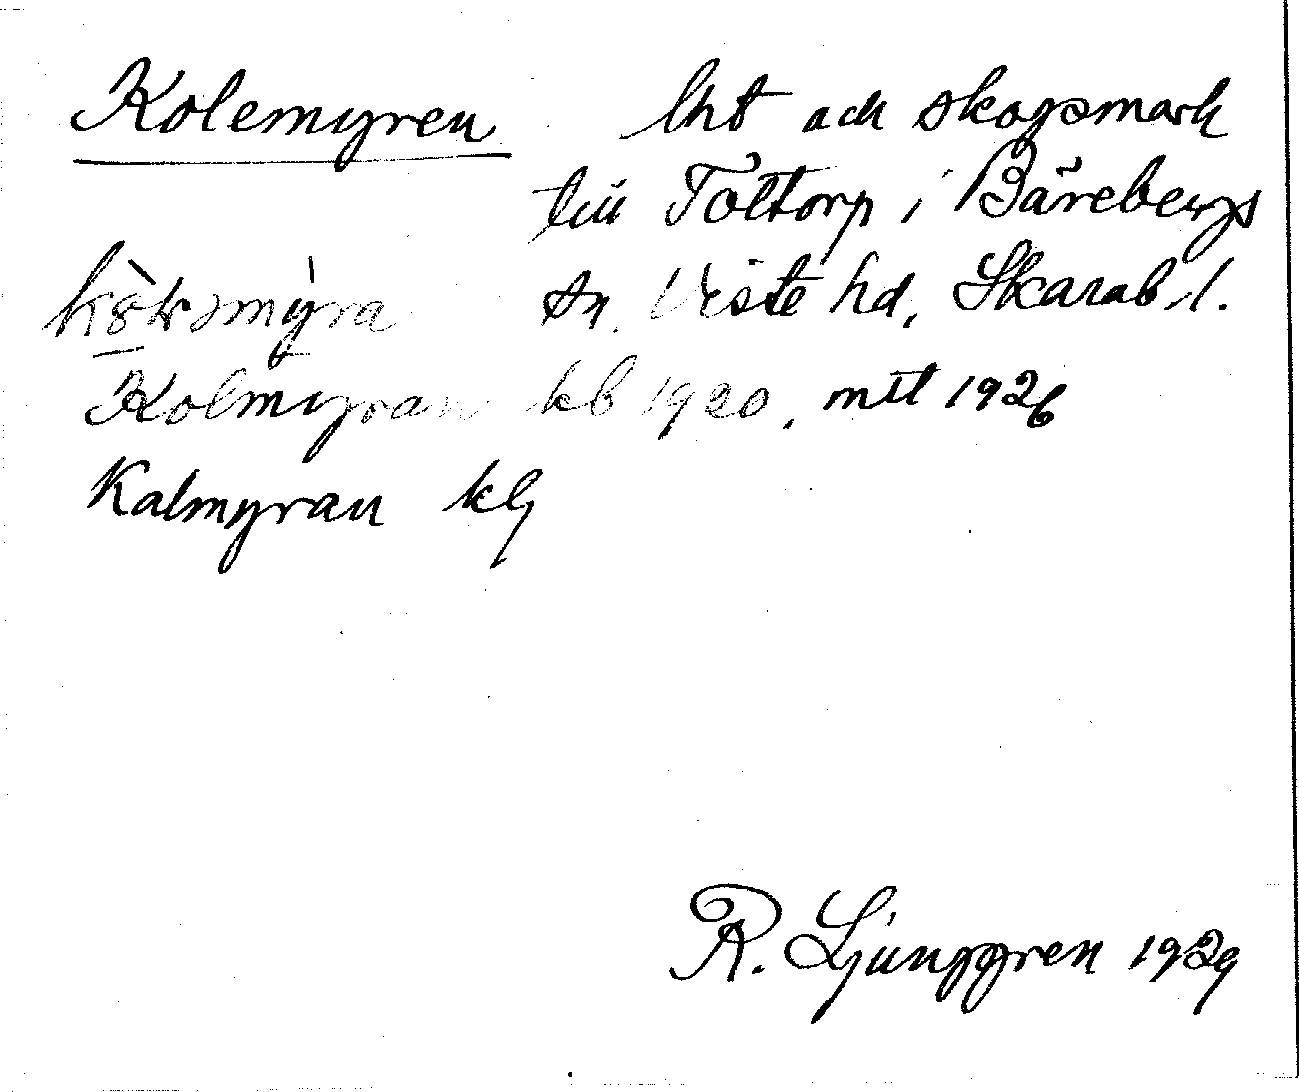 Kolemyren lht och skogsmark
till Toltorp i Bärebergs
sn. Viste hd, Skarab. l.
Kolmyran kb 1920, mtl 1926
Kalmyran klj
R. Ljunggren 1929